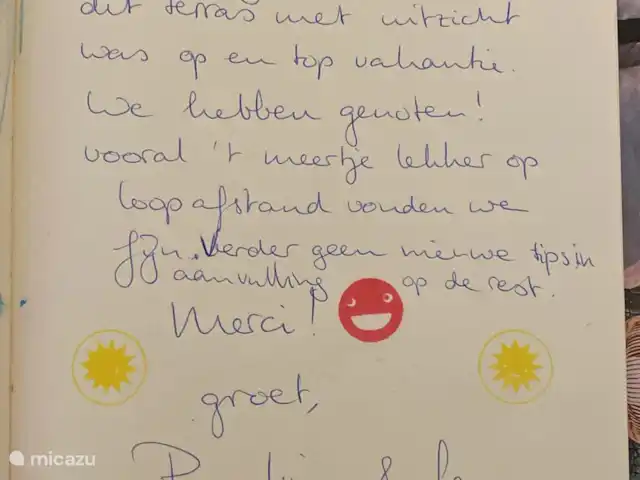 dit terras met uitzicht
was op en top vakantie.
We hebben genoten!
vooral 't meertje lekker op
loopafstand vonden we
fijn. Verder geen nieuwe tips in
aanvulling op de rest.
Merci!
groet,
micazu